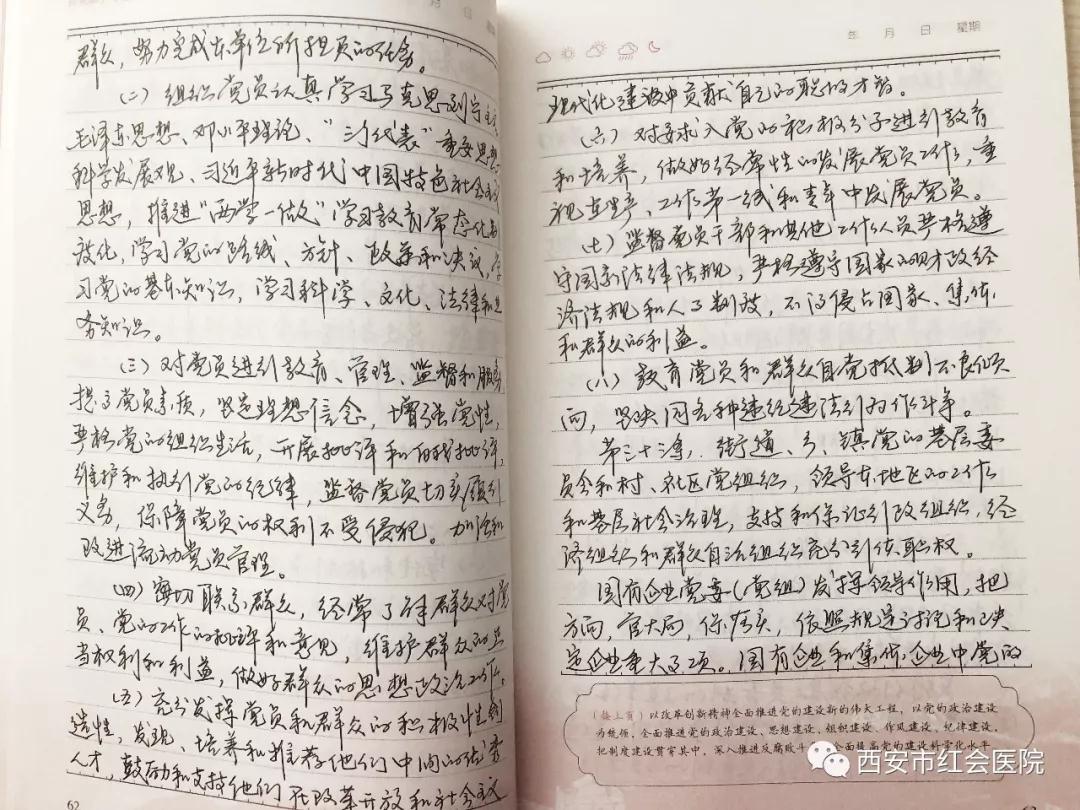 月 日
群众，努力完成本单位所担负的任务。
(二) 组织党员认真学习马克思列宁主
毛泽东思想、邓小平理论、“三个代表”重要思想
科学发展观、习近平新时代中国特色社会主义
思想，推进“两学一做”学习教育常态化制
度化，学习党的路线、方针、政策和决议，学
习党的基本知识，学习科学、文化、法律和业
务知识。
(三) 对党员进行教育、管理、监督和服务
提高党员素质，坚定理想信念，增强党性，
严格党的组织生活，开展批评和自我批评，
维护和执行党的纪律，监督党员切实履行
义务，保障党员的权利不受侵犯。加强和
改进流动党员管理。
(四) 密切联系群众，经常了解群众对党
员、党的工作的批评和意见，维护群众的正
当权利和利益，做好群众的思想政治工作。
(五) 充分发挥党员和群众的积极性创
造性，发现、培养和推荐他们中间的优秀
人才，鼓励和支持他们在改革开放和社会主义
62
年 月 日 星期
现代化建设中贡献自己的聪明才智。
(六) 对要求入党的积极分子进行教育
和培养，做好经常性的发展党员工作，重
视在生产、工作第一线和青年中发展党员。
(七) 监督党员干部和其他工作人员严格遵
守国家法律法规，严格遵守国家的财政经
济法规和人事制度，不得侵占国家、集体
和群众的利益。
(八) 教育党员和群众自觉抵制不良倾
向，坚决同各种违纪违法行为作斗争。
第三十三条，街道、乡、镇党的基层委
员会和村、社区党组织，领导本地区的工作
和基层社会治理，支持和保证行政组织，经
济组织和群众自治组织充分行使职权。
国有企业党委(党组)发挥领导作用，把
方向，管大局，保落实，依照规定讨论和决
定企业重大事项。国有企业和集体企业中党的
(接上页) 以改革创新精神全面推进党的建设新的伟大工程，以党的政治建设
为统领，全面推进党的政治建设、思想建设、组织建设、作风建设、纪律建设，
把制度建设贯穿其中，深入推进反腐败斗 全面提高党的建设科学化水平
西安市红会医院